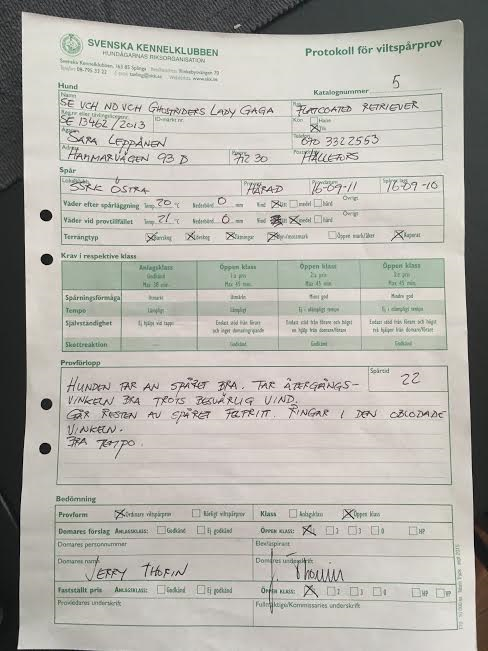 SVENSKA KENNELKLUBBEN
HUNDÄGARNAS RIKSORGANISATION
Svenska Kennelklubben, 163 85 Spånga Besöksadress Rinkebysvängen 70
Telefon 08-795 33 22
Protokoll för viltspårprov
Katalognummer 5
Hund
Namn
SE UCH NO UCH GHOSTRIDERS LADY GAGA
FLATCOATED RETRIEVER
SE 13462/2013
ID-märkt nr.
Kön Hane
Tik
SARA LEPPÄNEN
Telefon
070 3322553
HAMMARVÄGEN 93 D
712 30
HÄLLEFORS
Spår
SSRK ÖSTRA
HÄRAD
16-09-11
16-09-10
Väder efter spårläggning Temp. 20 °C Nederbörd 0 mm Vind lätt medel hård Övrigt
Väder vid provtillfället Temp. 21 °C Nederbörd 0 mm Vind lätt medel hård Övrigt
Terrängtyp Barrskog Lövskog Tätningar Myr/mossmark Öppen mark/åker Kuperat
Krav i respektive klass
Anlagsklass Öppen klass Öppen klass Öppen klass
Godkänd 1:a pris 2:a pris 3:e pris
Max 30 min. Max 45 min. Max 45 min. Max 45 min.
Spårningsförmåga Utmärkt Utmärkt Minst god Mindre god
Tempo Lämpligt Lämpligt Ej i olämpligt tempo Ej i olämpligt tempo
Självständighet Ej hjälpt vid tappt Endast stöd från förare och inget domaringripande Endast stöd från förare och högst en hjälp från domare/förare Endast stöd från förare och högst två hjälper från domare/förare
Skottreaktion — Godkänd Godkänd Godkänd
Provförlopp
Spårtid 22
HUNDEN TAR AN SPÅRET BRA. TAR ÅTERGÅNGS-
VINKELN BRA TROTS BESVÄRLIG VIND.
GÅR RESTEN AV SPÅRET FELFRITT. RINGAR I DEN OBLODADE
VINKELN.
BRA TEMPO.
Bedömning
Provform Ordinarie viltspårprov Rörligt viltspårprov Klass Anlagsklass Öppen klass
Domares förslag ANLAGSKLASS: Godkänd Ej godkänd ÖPPEN KLASS: 1 2 3 0 HP
Domares personnummer
Elev/aspirant
Domares namn
Domares underskrift
JERRY THORIN
J. Thorin
Fastställt pris ANLAGSKLASS: Godkänd Ej godkänd ÖPPEN KLASS: 1 2 3 0 HP
Provledares underskrift
Fullmäktige/Kommissaries underskrift